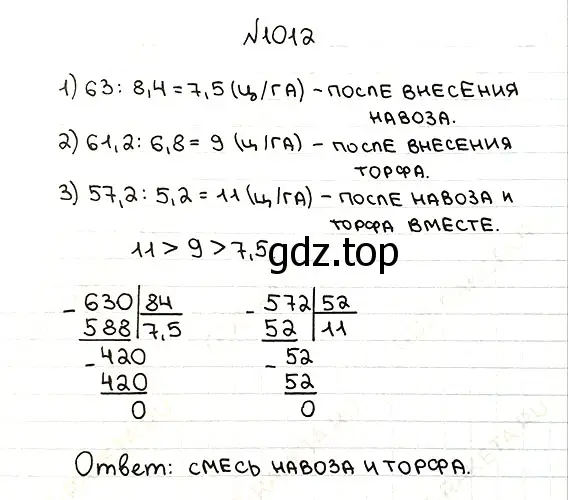 №1012
1) 63 : 8,4 = 7,5 (ц/га) – после внесения
навоза.
2) 61,2 : 6,8 = 9 (ц/га) – после внесения
торфа.
3) 57,2 : 5,2 = 11 (ц/га) – после навоза и
торфа вместе.
11 > 9 > 7,5
gdz.top
- 630 | 84
588 | 7,5
- 420
420
0
- 572 | 52
52 | 11
- 52
52
0
Ответ: смесь навоза и торфа.